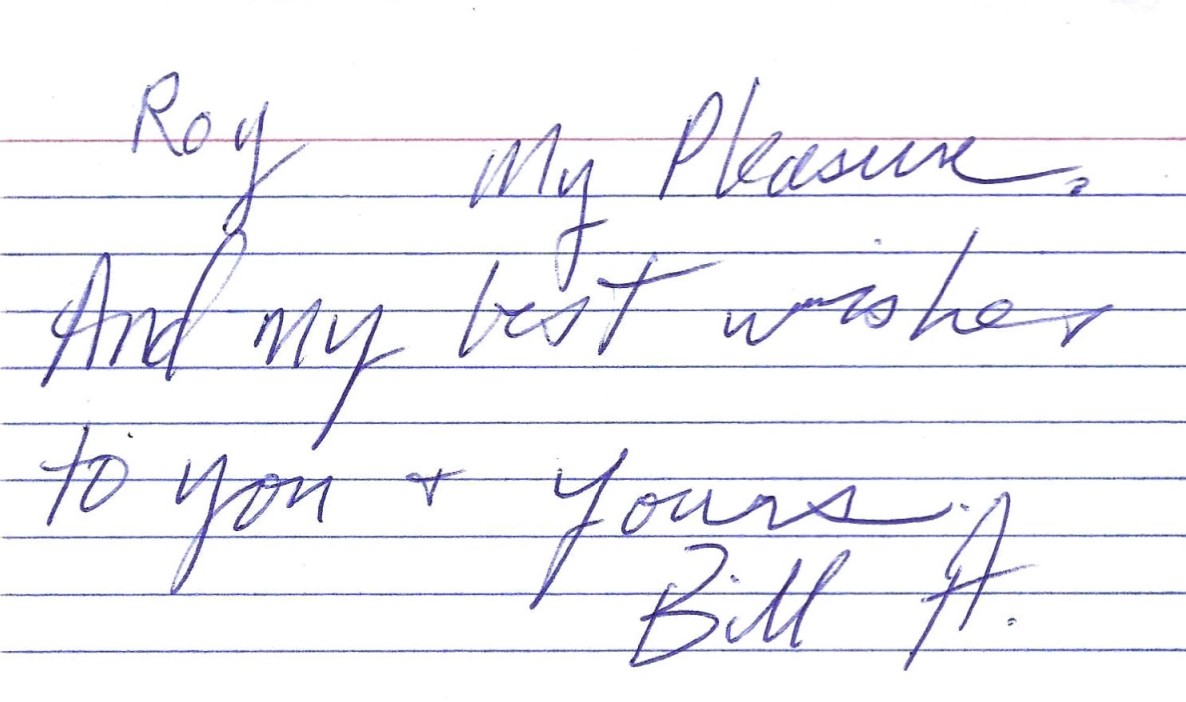 Roy My Pleasure.
And my best wishes
to you + yours.
Bill A.